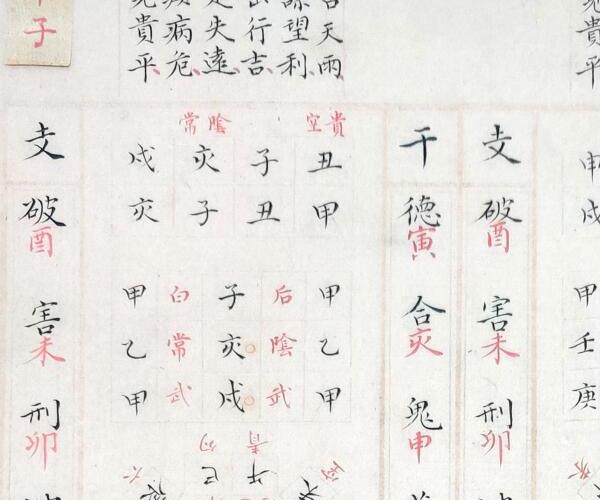 貴平
天雨
望利
行吉
失遠
病危
貴平
子
申戌
甲壬庚
支
破酉
害未
刑卯
干
德寅
合亥
鬼申
貴空 陰常
丑子亥戌
甲丑子亥
甲后子白甲
乙陰亥常乙
甲武戌武甲
支
破酉
害未
刑卯